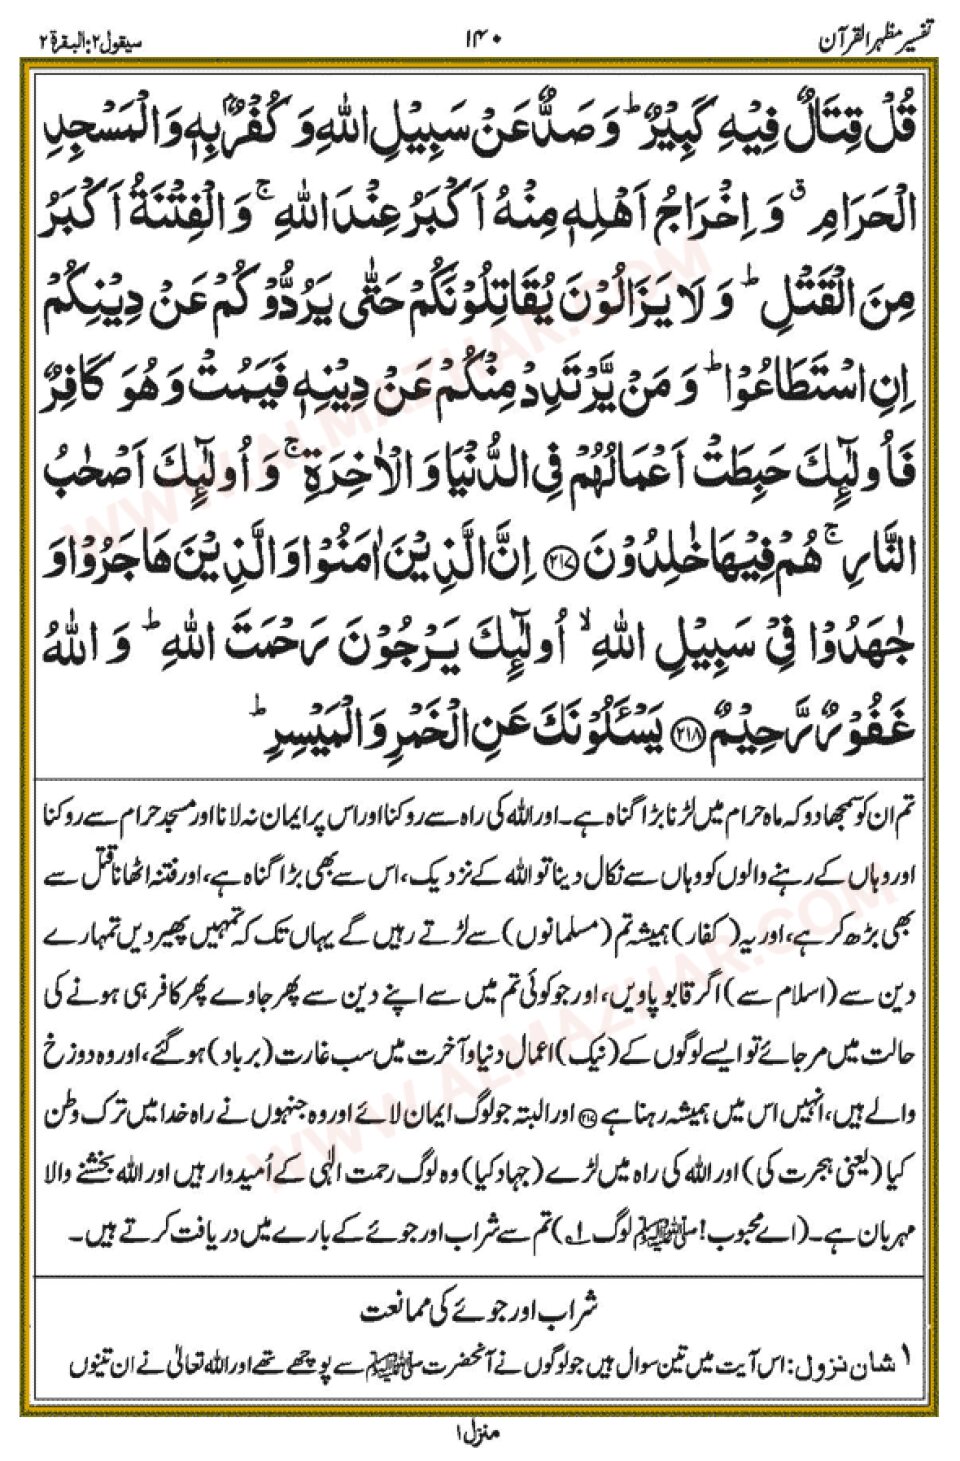 تفسیر مظہر القرآن
۱۴۰
سیقول ۲: البقرۃ ۲
قُلْ قِتَالٌ فِیْهِ كَبِیْرٌ ؕ وَ صَدٌّ عَنْ سَبِیْلِ اللّٰهِ وَ كُفْرٌۢ بِهٖ وَ الْمَسْجِدِ
الْحَرَامِ ۗ وَ اِخْرَاجُ اَهْلِهٖ مِنْهُ اَكْبَرُ عِنْدَ اللّٰهِ ۚ وَ الْفِتْنَةُ اَكْبَرُ
مِنَ الْقَتْلِ ؕ وَ لَا یَزَالُوْنَ یُقَاتِلُوْنَكُمْ حَتّٰی یَرُدُّوْكُمْ عَنْ دِیْنِكُمْ
اِنِ اسْتَطَاعُوْا ؕ وَ مَنْ یَّرْتَدِدْ مِنْكُمْ عَنْ دِیْنِهٖ فَیَمُتْ وَ هُوَ كَافِرٌ
فَاُولٰٓىِٕكَ حَبِطَتْ اَعْمَالُهُمْ فِی الدُّنْیَا وَ الْاٰخِرَةِ ۚ وَ اُولٰٓىِٕكَ اَصْحٰبُ
النَّارِ ۚ هُمْ فِیْهَا خٰلِدُوْنَ ﴿۲۱۷﴾ اِنَّ الَّذِیْنَ اٰمَنُوْا وَ الَّذِیْنَ هَاجَرُوْا وَ
جٰهَدُوْا فِیْ سَبِیْلِ اللّٰهِ ۙ اُولٰٓىِٕكَ یَرْجُوْنَ رَحْمَتَ اللّٰهِ ؕ وَ اللّٰهُ
غَفُوْرٌ رَّحِیْمٌ ﴿۲۱۸﴾ یَسْـَٔلُوْنَكَ عَنِ الْخَمْرِ وَ الْمَیْسِرِ ؕ
تم ان کو سمجھا دو کہ ماہ حرام میں لڑنا بڑا گناہ ہے۔ اور اللہ کی راہ سے روکنا اور اس پر ایمان نہ لانا اور مسجد حرام سے روکنا
اور وہاں کے رہنے والوں کو وہاں سے نکال دینا تو اللہ کے نزدیک، اس سے بھی بڑا گناہ ہے، اور فتنہ اٹھانا قتل سے
بھی بڑھ کر ہے، اور یہ (کفار) ہمیشہ تم (مسلمانوں) سے لڑتے رہیں گے یہاں تک کہ تمہیں پھیر دیں تمہارے
دین سے (اسلام سے) اگر قابو پاویں، اور جو کوئی تم میں سے اپنے دین سے پھر جاوے پھر کافر ہی ہونے کی
حالت میں مر جائے تو ایسے لوگوں کے (نیک) اعمال دنیا و آخرت میں سب غارت (برباد) ہو گئے، اور وہ دوزخ
والے ہیں، انہیں اس میں ہمیشہ رہنا ہے ﴿۲۱۷﴾ اور البتہ جو لوگ ایمان لائے اور وہ جنہوں نے راہ خدا میں ترک وطن
کیا (یعنی ہجرت کی) اور اللہ کی راہ میں لڑے (جہاد کیا) وہ لوگ رحمت الٰہی کے اُمیدوار ہیں اور اللہ بخشنے والا
مہربان ہے۔ (اے محبوب! ﷺ لوگ ۱) تم سے شراب اور جوئے کے بارے میں دریافت کرتے ہیں۔
شراب اور جوئے کی ممانعت
۱ شان نزول: اس آیت میں تین سوال ہیں جو لوگوں نے آنحضرت ﷺ سے پوچھے تھے اور اللہ تعالیٰ نے ان تینوں
منزل ۱
WWW.ALMAZHAR.COM
WWW.ALMAZHAR.COM